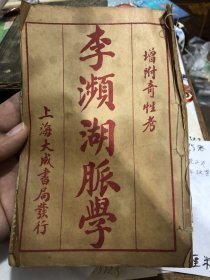 增附奇經考
李瀕湖脈學
上海大成書局發行